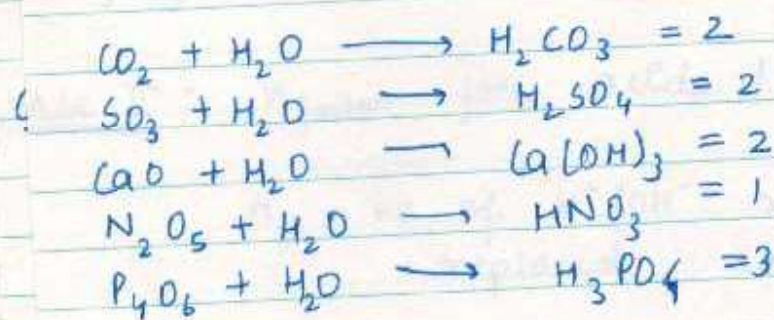 CO₂ + H₂O ⟶ H₂CO₃ = 2
SO₃ + H₂O ⟶ H₂SO₄ = 2
CaO + H₂O — Ca(OH)₃ = 2
N₂O₅ + H₂O ⟶ HNO₃ = 1
P₄O₆ + H₂O ⟶ H₃PO₄ = 3